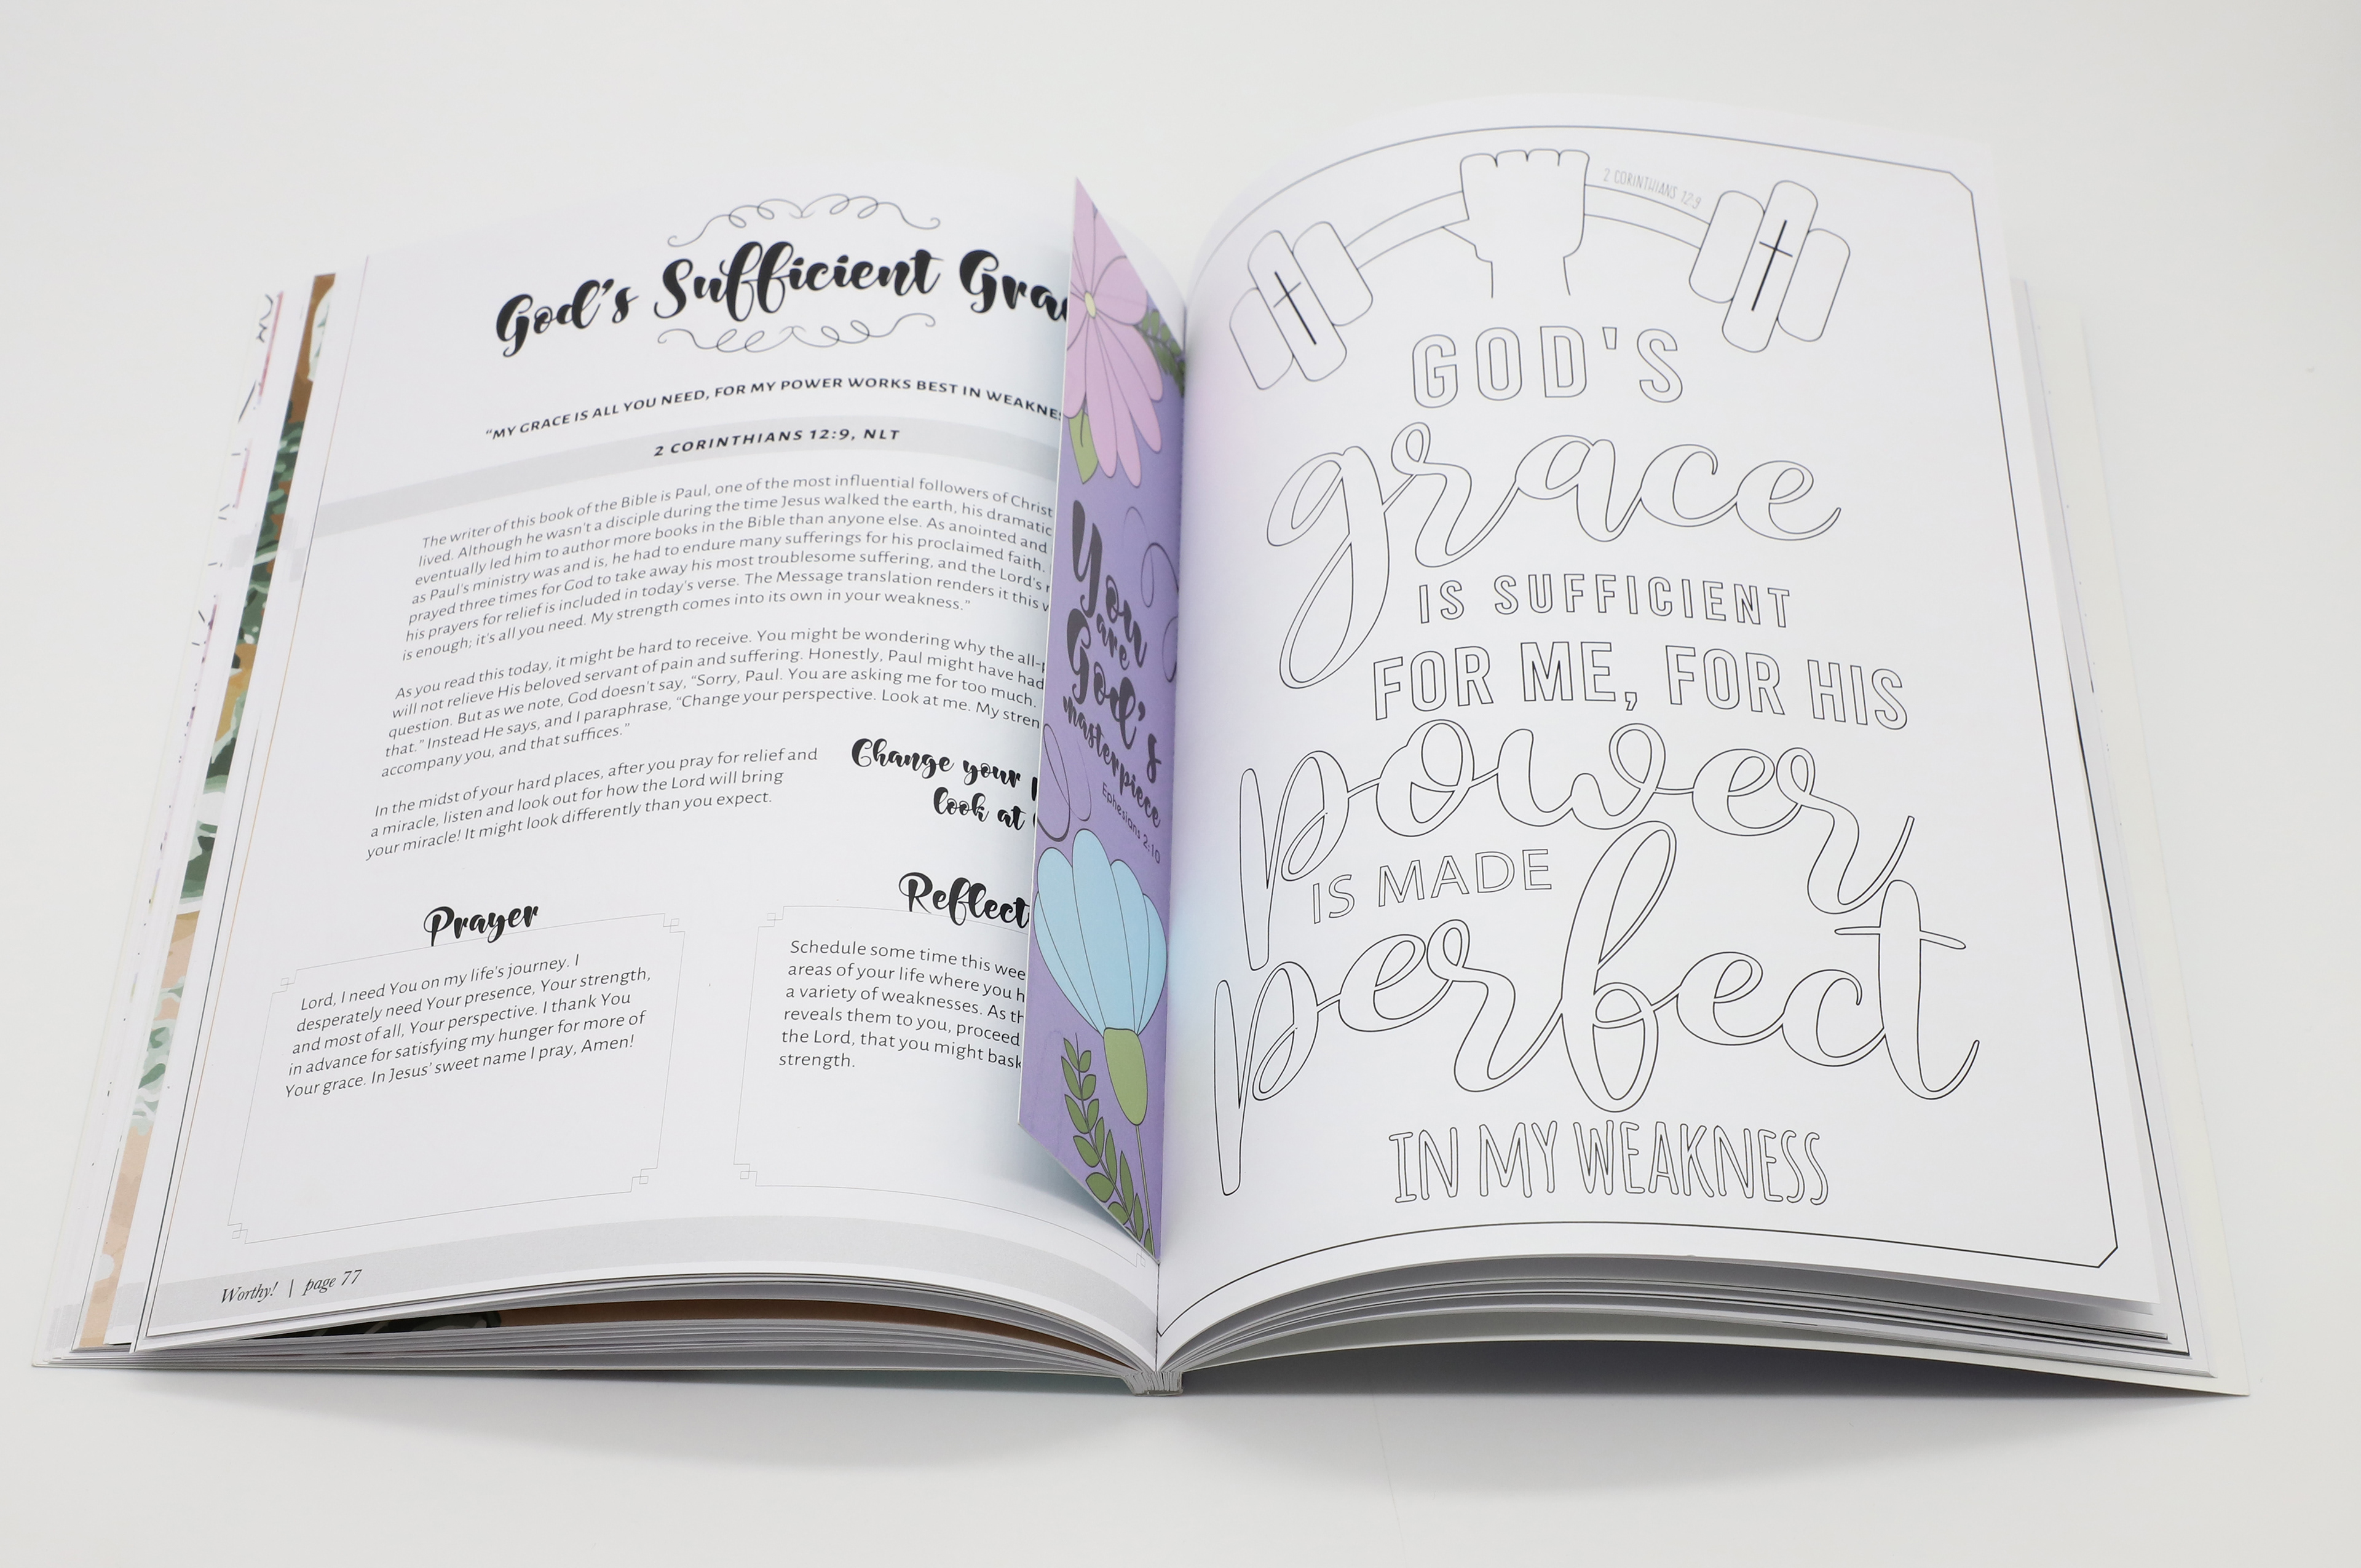 God's Sufficient
"MY GRACE IS ALL YOU NEED, FOR MY POWER WORKS BEST IN
2 CORINTHIANS 12:9, NLT
The writer of this book of the Bible is Paul, one of the most influential followers of Christ
lived. Although he wasn't a disciple during the time Jesus walked the earth, his dramatic
eventually led him to author more books in the Bible than anyone else. As anointed and
as Paul's ministry was and is, he had to endure many sufferings for his proclaimed faith.
prayed three times for God to take away his most troublesome suffering, and the Lord's
his prayers for relief is included in today's verse. The Message translation renders it this
is enough; it's all you need. My strength comes into its own in your weakness."
As you read this today, it might be hard to receive. You might be wondering why the
will not relieve His beloved servant of pain and suffering. Honestly, Paul might have had
question. But as we note, God doesn't say, "Sorry, Paul. You are asking me for too much.
that." Instead He says, and I paraphrase, "Change your perspective. Look at me. My
accompany you, and that suffices."
In the midst of your hard places, after you pray for relief and
a miracle, listen and look out for how the Lord will bring
your miracle! It might look differently than you expect.
Change your
look at
Prayer
Lord, I need You on my life's journey. I
desperately need Your presence, Your strength,
and most of all, Your perspective. I thank You
in advance for satisfying my hunger for more of
Your grace. In Jesus' sweet name I pray, Amen!
Reflect
Schedule some time this
areas of your life where you
a variety of weaknesses. As
reveals them to you, proceed
the Lord, that you might bask
strength.
Worthy! | page 77
You
are
God's
masterpiece
Ephesians 2:10
2 CORINTHIANS 12:9
GOD'S
grace
IS SUFFICIENT
FOR ME, FOR HIS
power
IS MADE
perfect
IN MY WEAKNESS